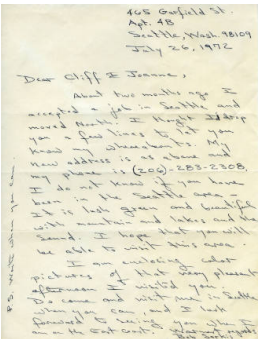 465 Garfield St.
Apt. 4B
Seattle, Wash. 98109
July 26, 1972
Dear Cliff & Joanne,
About two months ago I
accepted a job in Seattle and
moved North. I thought I'd drop
you a few lines to let you
know my whereabouts. My
new address is as above and
my phone is (206)-283-2308.
I do not know if you have
been in the Seattle area.
It is lush green and beautiful
with mountain and lakes and the
Sound. I hope that you will
be able to visit this area.
I am enclosing color
pictures of that very pleasant
afternoon I visit'd you.
Do come and visit me in Seattle
when you can, and I look
forward to seeing you when I
am on the East Coast. Warmest regards,
Bob
P.S. Write when you can.